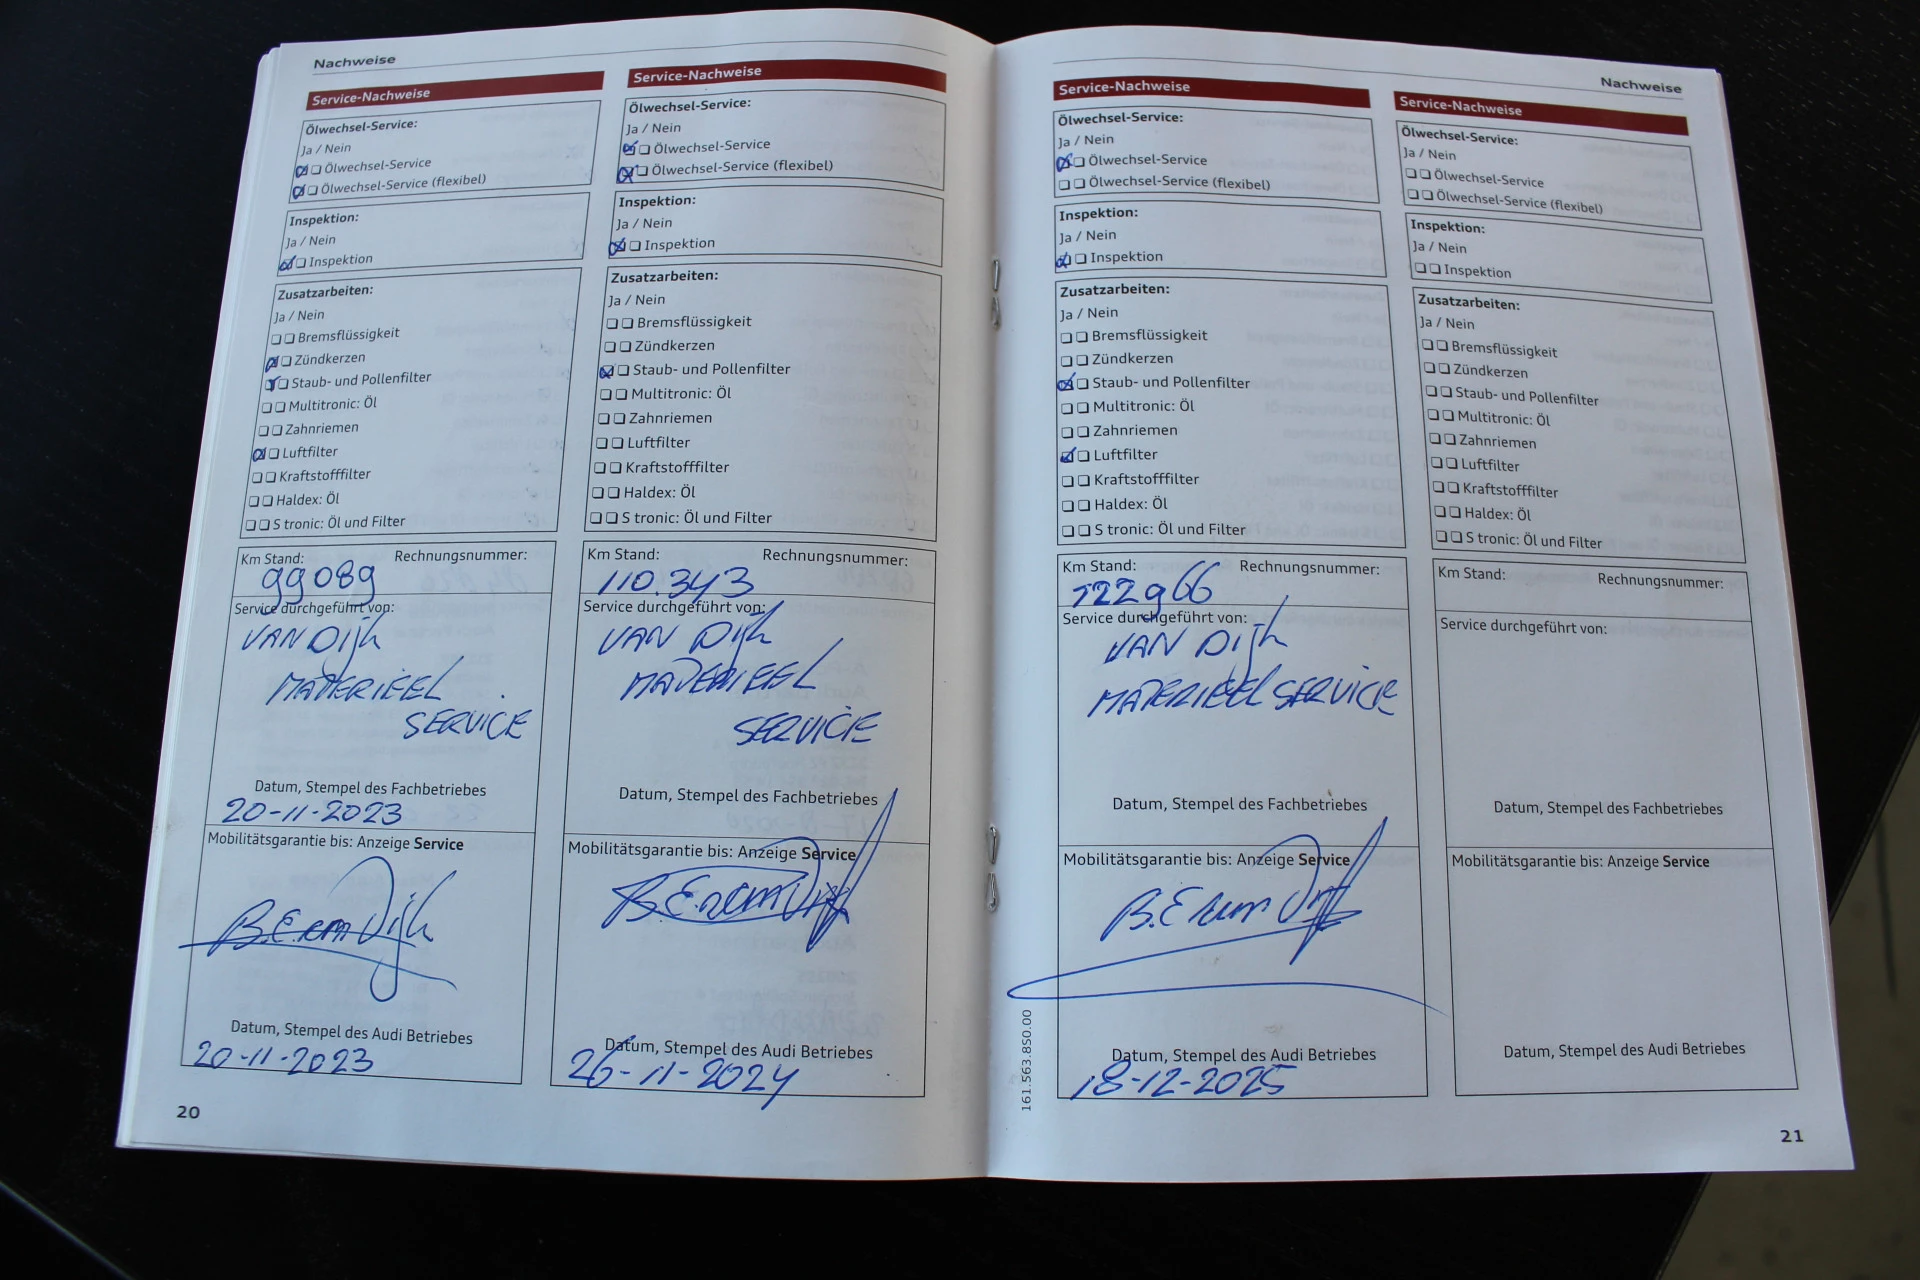 Nachweise
Service-Nachweise
Ölwechsel-Service:
Ja / Nein
Ölwechsel-Service
Ölwechsel-Service (flexibel)
Inspektion:
Ja / Nein
Inspektion
Zusatzarbeiten:
Ja / Nein
Bremsflüssigkeit
Zündkerzen
Staub- und Pollenfilter
Multitronic: Öl
Zahnriemen
Luftfilter
Kraftstofffilter
Haldex: Öl
S tronic: Öl und Filter
Km Stand: Rechnungsnummer:
99089
Service durchgeführt von:
VAN DIJK
MATERIEEL
SERVICE
Datum, Stempel des Fachbetriebes
20-11-2023
Mobilitätsgarantie bis: Anzeige Service
Datum, Stempel des Audi Betriebes
20-11-2023
20
Service-Nachweise
Ölwechsel-Service:
Ja / Nein
Ölwechsel-Service
Ölwechsel-Service (flexibel)
Inspektion:
Ja / Nein
Inspektion
Zusatzarbeiten:
Ja / Nein
Bremsflüssigkeit
Zündkerzen
Staub- und Pollenfilter
Multitronic: Öl
Zahnriemen
Luftfilter
Kraftstofffilter
Haldex: Öl
S tronic: Öl und Filter
Km Stand: Rechnungsnummer:
110.343
Service durchgeführt von:
VAN DIJK
MATERIEEL
SERVICE
Datum, Stempel des Fachbetriebes
Mobilitätsgarantie bis: Anzeige Service
Datum, Stempel des Audi Betriebes
26-11-2024
Nachweise
Service-Nachweise
Ölwechsel-Service:
Ja / Nein
Ölwechsel-Service
Ölwechsel-Service (flexibel)
Inspektion:
Ja / Nein
Inspektion
Zusatzarbeiten:
Ja / Nein
Bremsflüssigkeit
Zündkerzen
Staub- und Pollenfilter
Multitronic: Öl
Zahnriemen
Luftfilter
Kraftstofffilter
Haldex: Öl
S tronic: Öl und Filter
Km Stand: Rechnungsnummer:
122966
Service durchgeführt von:
VAN DIJK
MATERIEEL SERVICE
Datum, Stempel des Fachbetriebes
Mobilitätsgarantie bis: Anzeige Service
Datum, Stempel des Audi Betriebes
18-12-2025
161.563.850.00
Service-Nachweise
Ölwechsel-Service:
Ja / Nein
Ölwechsel-Service
Ölwechsel-Service (flexibel)
Inspektion:
Ja / Nein
Inspektion
Zusatzarbeiten:
Ja / Nein
Bremsflüssigkeit
Zündkerzen
Staub- und Pollenfilter
Multitronic: Öl
Zahnriemen
Luftfilter
Kraftstofffilter
Haldex: Öl
S tronic: Öl und Filter
Km Stand: Rechnungsnummer:
Service durchgeführt von:
Datum, Stempel des Fachbetriebes
Mobilitätsgarantie bis: Anzeige Service
Datum, Stempel des Audi Betriebes
21